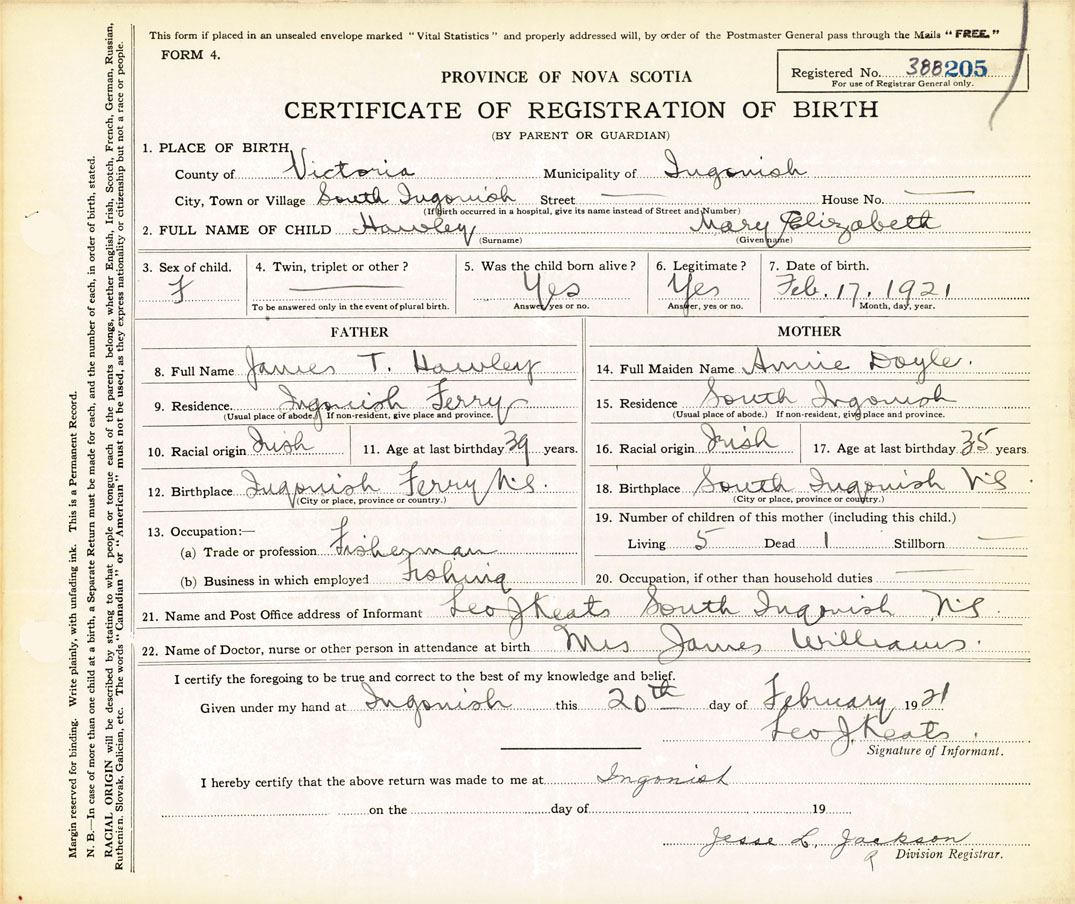 This form if placed in an unsealed envelope marked "Vital Statistics" and properly addressed will, by order of the Postmaster General pass through the Mails "FREE."
FORM 4.
PROVINCE OF NOVA SCOTIA
Registered No. 388205
For use of Registrar General only.
CERTIFICATE OF REGISTRATION OF BIRTH
(BY PARENT OR GUARDIAN)
1. PLACE OF BIRTH
County of Victoria Municipality of Ingonish
City, Town or Village South Ingonish Street House No.
(If birth occurred in a hospital, give its name instead of Street and Number)
2. FULL NAME OF CHILD Hawley Mary Elizabeth
(Surname) (Given name)
3. Sex of child. 4. Twin, triplet or other? 5. Was the child born alive? 6. Legitimate? 7. Date of birth.
F Yes Yes Feb. 17, 1921
To be answered only in the event of plural birth. Answer, yes or no. Answer, yes or no. Month, day, year.
FATHER
8. Full Name James T. Hawley
9. Residence. Ingonish Ferry
(Usual place of abode.) If non-resident, give place and province.
10. Racial origin Irish 11. Age at last birthday 39 years.
12. Birthplace Ingonish Ferry N.S.
(City or place, province or country.)
13. Occupation:—
(a) Trade or profession Fisherman
(b) Business in which employed Fishing
MOTHER
14. Full Maiden Name Annie Doyle.
15. Residence South Ingonish
(Usual place of abode.) If non-resident, give place and province.
16. Racial origin Irish 17. Age at last birthday 35 years
18. Birthplace South Ingonish N.S.
(City or place, province or country.)
19. Number of children of this mother (including this child.)
Living 5 Dead 1 Stillborn
20. Occupation, if other than household duties
21. Name and Post Office address of Informant Leo J Keats South Ingonish N.S.
22. Name of Doctor, nurse or other person in attendance at birth Mrs James Williams.
I certify the foregoing to be true and correct to the best of my knowledge and belief.
Given under my hand at Ingonish this 20th day of February, 1921
Leo J. Keats
Signature of Informant.
I hereby certify that the above return was made to me at Ingonish
on the day of 19
Jesse L. Jackson
Division Registrar.
Margin reserved for binding. Write plainly, with unfading ink. This is a Permanent Record.
N. B.—In case of more than one child at a birth, a Separate Return must be made for each, and the number of each, in order of birth, stated.
RACIAL ORIGIN will be described by stating to what people or tongue each of the parents belongs, whether English, Irish, Scotch, French, German, Russian,
Ruthenian, Slovak, Galician, etc. The words "Canadian" or "American" must not be used, as they express nationality or citizenship but not a race or people.